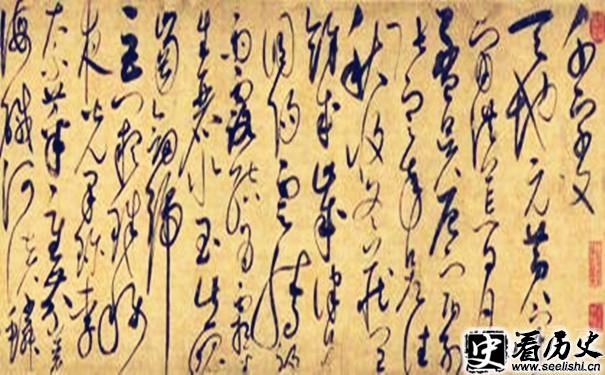 千字文
天地元黃宇
宙洪荒日月
盈昃辰宿列
張寒來暑往
秋收冬藏閏
餘成歲律呂
調陽雲騰致
雨露結為霜金
生麗水玉出崑
岡劍號
巨闕珠稱
夜光果珍李
柰菜重芥薑
海鹹河淡鱗
史 看历史
www.seelishi.cn